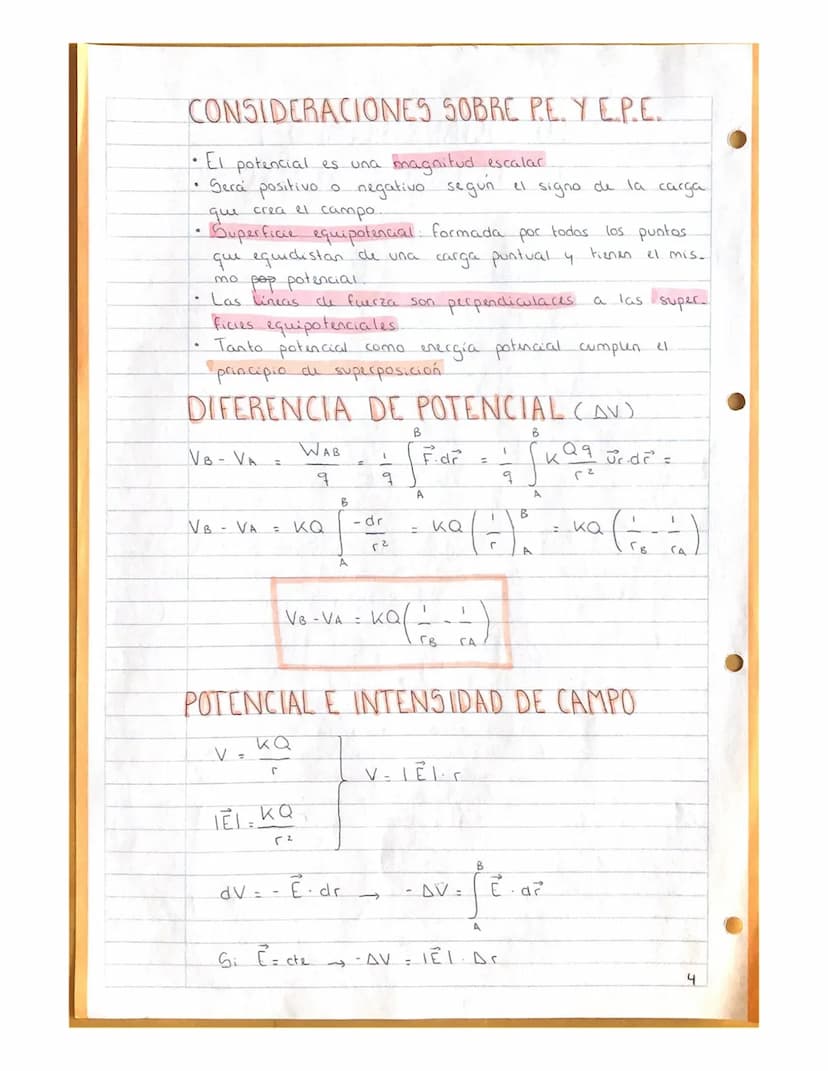 CONSIDERACIONES SOBRE P.E. Y E.P.E.
· El potencial es una magnitud escalar
· Será positivo o negativo según el signo de la carga
que crea el campo.
· Superficie equipotencial: formada por todos los puntos
que equidistan de una carga puntual y tienen el mis-
mo pop potencial.
· Las líneas de fuerza son perpendiculares a las super-
ficies equipotenciales.
· Tanto potencial como energía potencial cumplen el
principio de superposición
DIFERENCIA DE POTENCIAL (ΔV)
V_B - V_A = W_AB / q = 1/q ∫_A^B F⃗·dr⃗ = 1/q ∫_A^B K Qq/r² u⃗r·dr⃗ =
V_B - V_A = KQ ∫_A^B -dr/r² = KQ (1/r)_A^B = KQ (1/r_B - 1/r_A)
V_B - V_A = KQ (1/r_B - 1/r_A)
POTENCIAL E INTENSIDAD DE CAMPO
V = KQ/r
V = |E⃗|·r
|E⃗| = KQ/r²
dV = - E⃗·dr → - ΔV = ∫_A^B E⃗·dr⃗
Si E⃗ = cte → -ΔV = |E⃗|·Δr
4